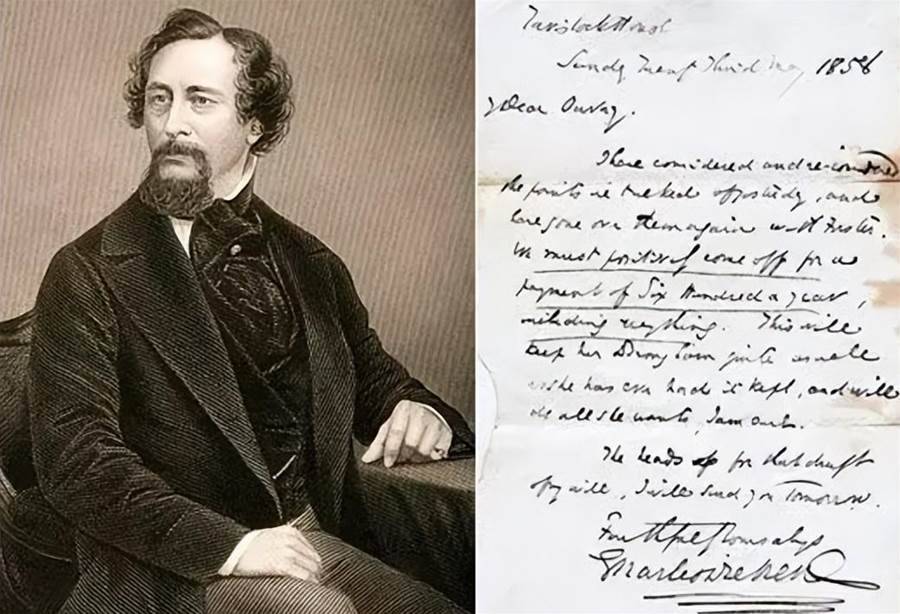 Tavistock House
Sunday Twenty Third May 1858
My Dear Ouvry.
I have considered and re-considered
the points we talked of yesterday, and
have gone over them again with Forster.
We must positively come off for a
payment of Six Hundred a year,
including everything. This will
keep her Brougham quite as well
as she has ever had it kept, and will
do all she wants, I am sure.
The heads for that draft
of my will, I will send you tomorrow.
Faithfully Yours always
Charles Dickens